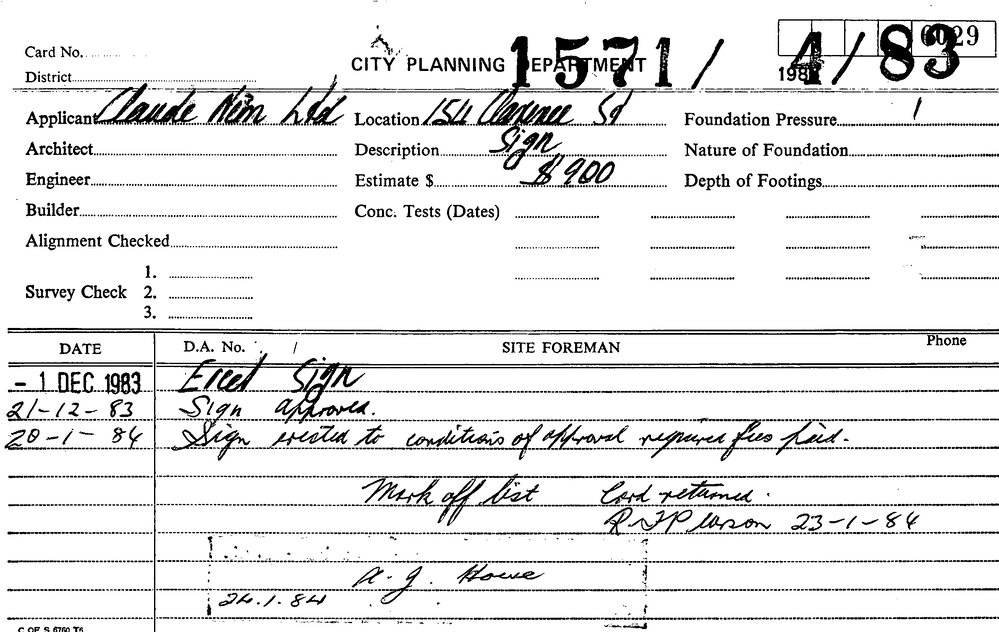 6029
Card No.
CITY PLANNING DEPARTMENT 1571/ 4/83
District
198
Applicant Claude Neon Ltd Location 154 Clarence St Foundation Pressure
Architect Description Sign Nature of Foundation
Engineer Estimate $ $900 Depth of Footings
Builder Conc. Tests (Dates)
Alignment Checked
1.
Survey Check 2.
3.
DATE D.A. No. / SITE FOREMAN Phone
- 1 DEC 1983 Erect Sign
21-12-83 Sign approved.
20-1-84 Sign erected to conditions of approval required fees paid.
Mark off list Card returned.
23-1-84
A. J. Howe
24.1.84
C OF S 6760 T6